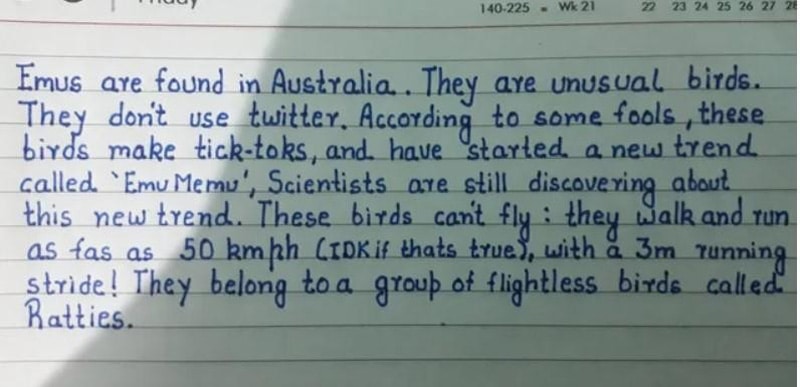 140-225 • Wk 21 22 23 24 25 26 27 28
Emus are found in Australia. They are unusual birds.
They don't use twitter. According to some fools, these
birds make tick-toks, and have started a new trend
called 'Emu Memu', Scientists are still discovering about
this new trend. These birds can't fly : they walk and run
as fas as 50 kmph (IDK if thats true), with a 3m running
stride! They belong to a group of flightless birds called
Ratties.